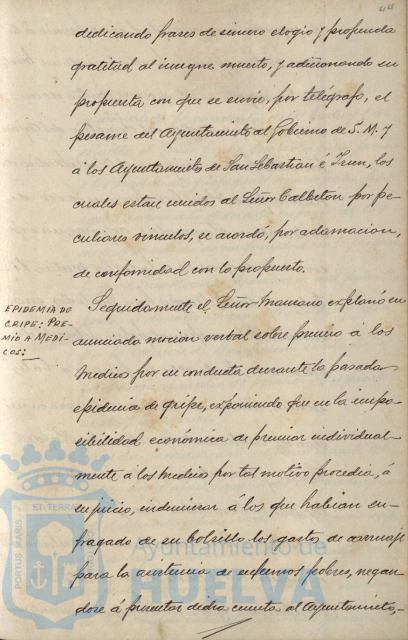 44
dedicando frases de sincero elogio y profunda
gratitud al insigne muerto, y adicionando su
propuesta con que se envie, por telégrafo, el
pesame del Ayuntamiento al Gobierno de S. M. y
á los Ayuntamientos de San Sebastian é Irun, los
cuales están unidos al Señor Calbetón por pe-
culiares vinculos, se acordó, por aclamacion,
de conformidad con lo propuesto.
EPIDEMIA DE
GRIPE: PRE-
MIO A MEDI-
COS:
Seguidamente el Señor Mascaró explanó su
anunciada mocion verbal sobre premio á los
Medicos por su conducta durante la pasada
epidemia de gripe, exponiendo que en la impo-
sibilidad económica de premiar individual-
mente á los Medicos por tal motivo procedia, á
su juicio, indemnizar á los que habian su-
fragado de su bolsillo los gastos de carruaje
para la asistencia de enfermos pobres, negan-
dose á presentar dicha cuenta al Ayuntamiento,-
PORTUS MARIS ET TERRÆ
Ayuntamiento de
HUELVA